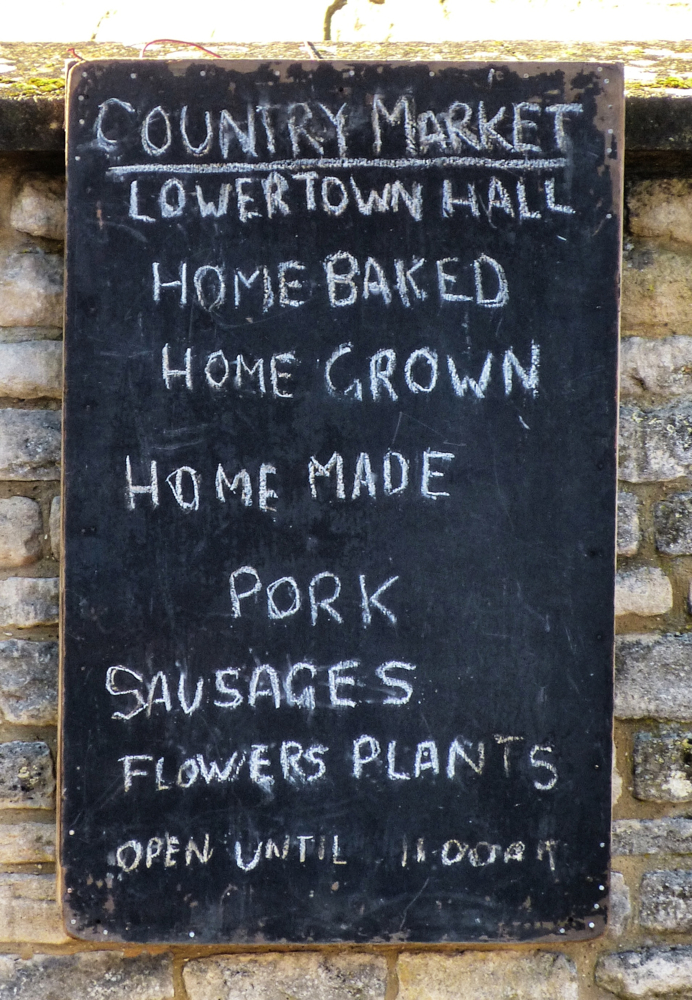 COUNTRY MARKET
LOWERTOWN HALL
HOME BAKED
HOME GROWN
HOME MADE
PORK
SAUSAGES
FLOWERS PLANTS
OPEN UNTIL 11·00